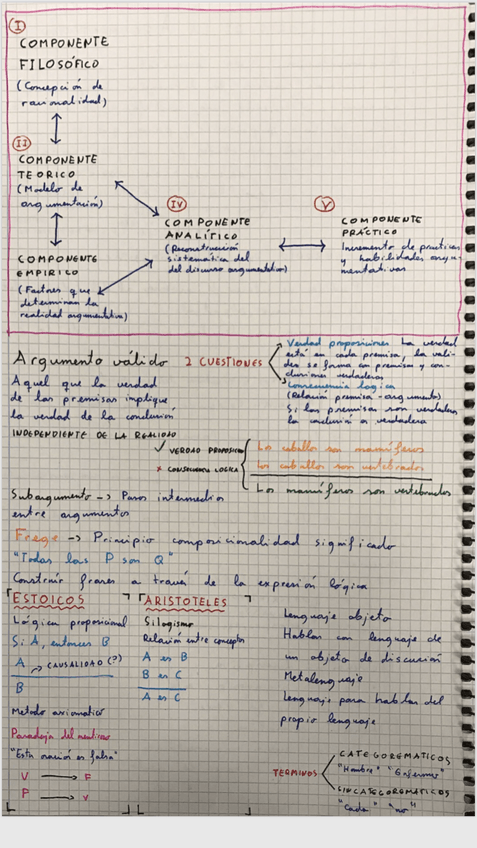 I
COMPONENTE
FILOSÓFICO
(Concepción de
racionalidad)
II
COMPONENTE
TEÓRICO
(Modelo de
argumentación)
COMPONENTE
EMPÍRICO
(Factores que
determinan la
realidad argumentativa)
IV
COMPONENTE
ANALÍTICO
(Reconstrucción
sistemática del
del discurso argumentativo)
V
COMPONENTE
PRÁCTICO
Incremento de prácticas
y habilidades argu-
mentativas
Argumento válido
Aquel que la verdad
de las premisas implique
la verdad de la conclusión
INDEPENDIENTE DE LA REALIDAD
2 CUESTIONES
Verdad proposiciones La verdad
está en cada premisa, la vali-
dez se forma con premisas y con-
clusiones verdaderas
Consecuencia lógica
(Relación premisa-argumento)
Si las premisas son verdaderas
la conclusión es verdadera
✓ VERDAD PROPOSICIÓN
x CONSECUENCIA LÓGICA
Los caballos son mamíferos
Los caballos son vertebrados
Los mamíferos son vertebrados
Subargumento -> Pasos intermedios
entre argumentos
Frege -> Principio composicionalidad significado
"Todas las P son Q"
Construir frases a través de la expresión lógica
ESTOICOS
Lógica proposicional
Si A, entonces B
A -> CAUSALIDAD (?)
B
Metodo axiomático
Paradoja del mentiroso
"Esta oración es falsa"
V -> F
F -> V
ARISTOTELES
Silogismo
Relación entre conceptos
A es B
B es C
A es C
Lenguaje objeto
Hablas con lenguaje de
un objeto de discusión
Metalenguaje
Lenguaje para hablar del
propio lenguaje
TERMINOS
CATEGOREMATICOS
"Hombre" "Enfermo"
SINCATEGOREMATICOS
"Cada" "no"